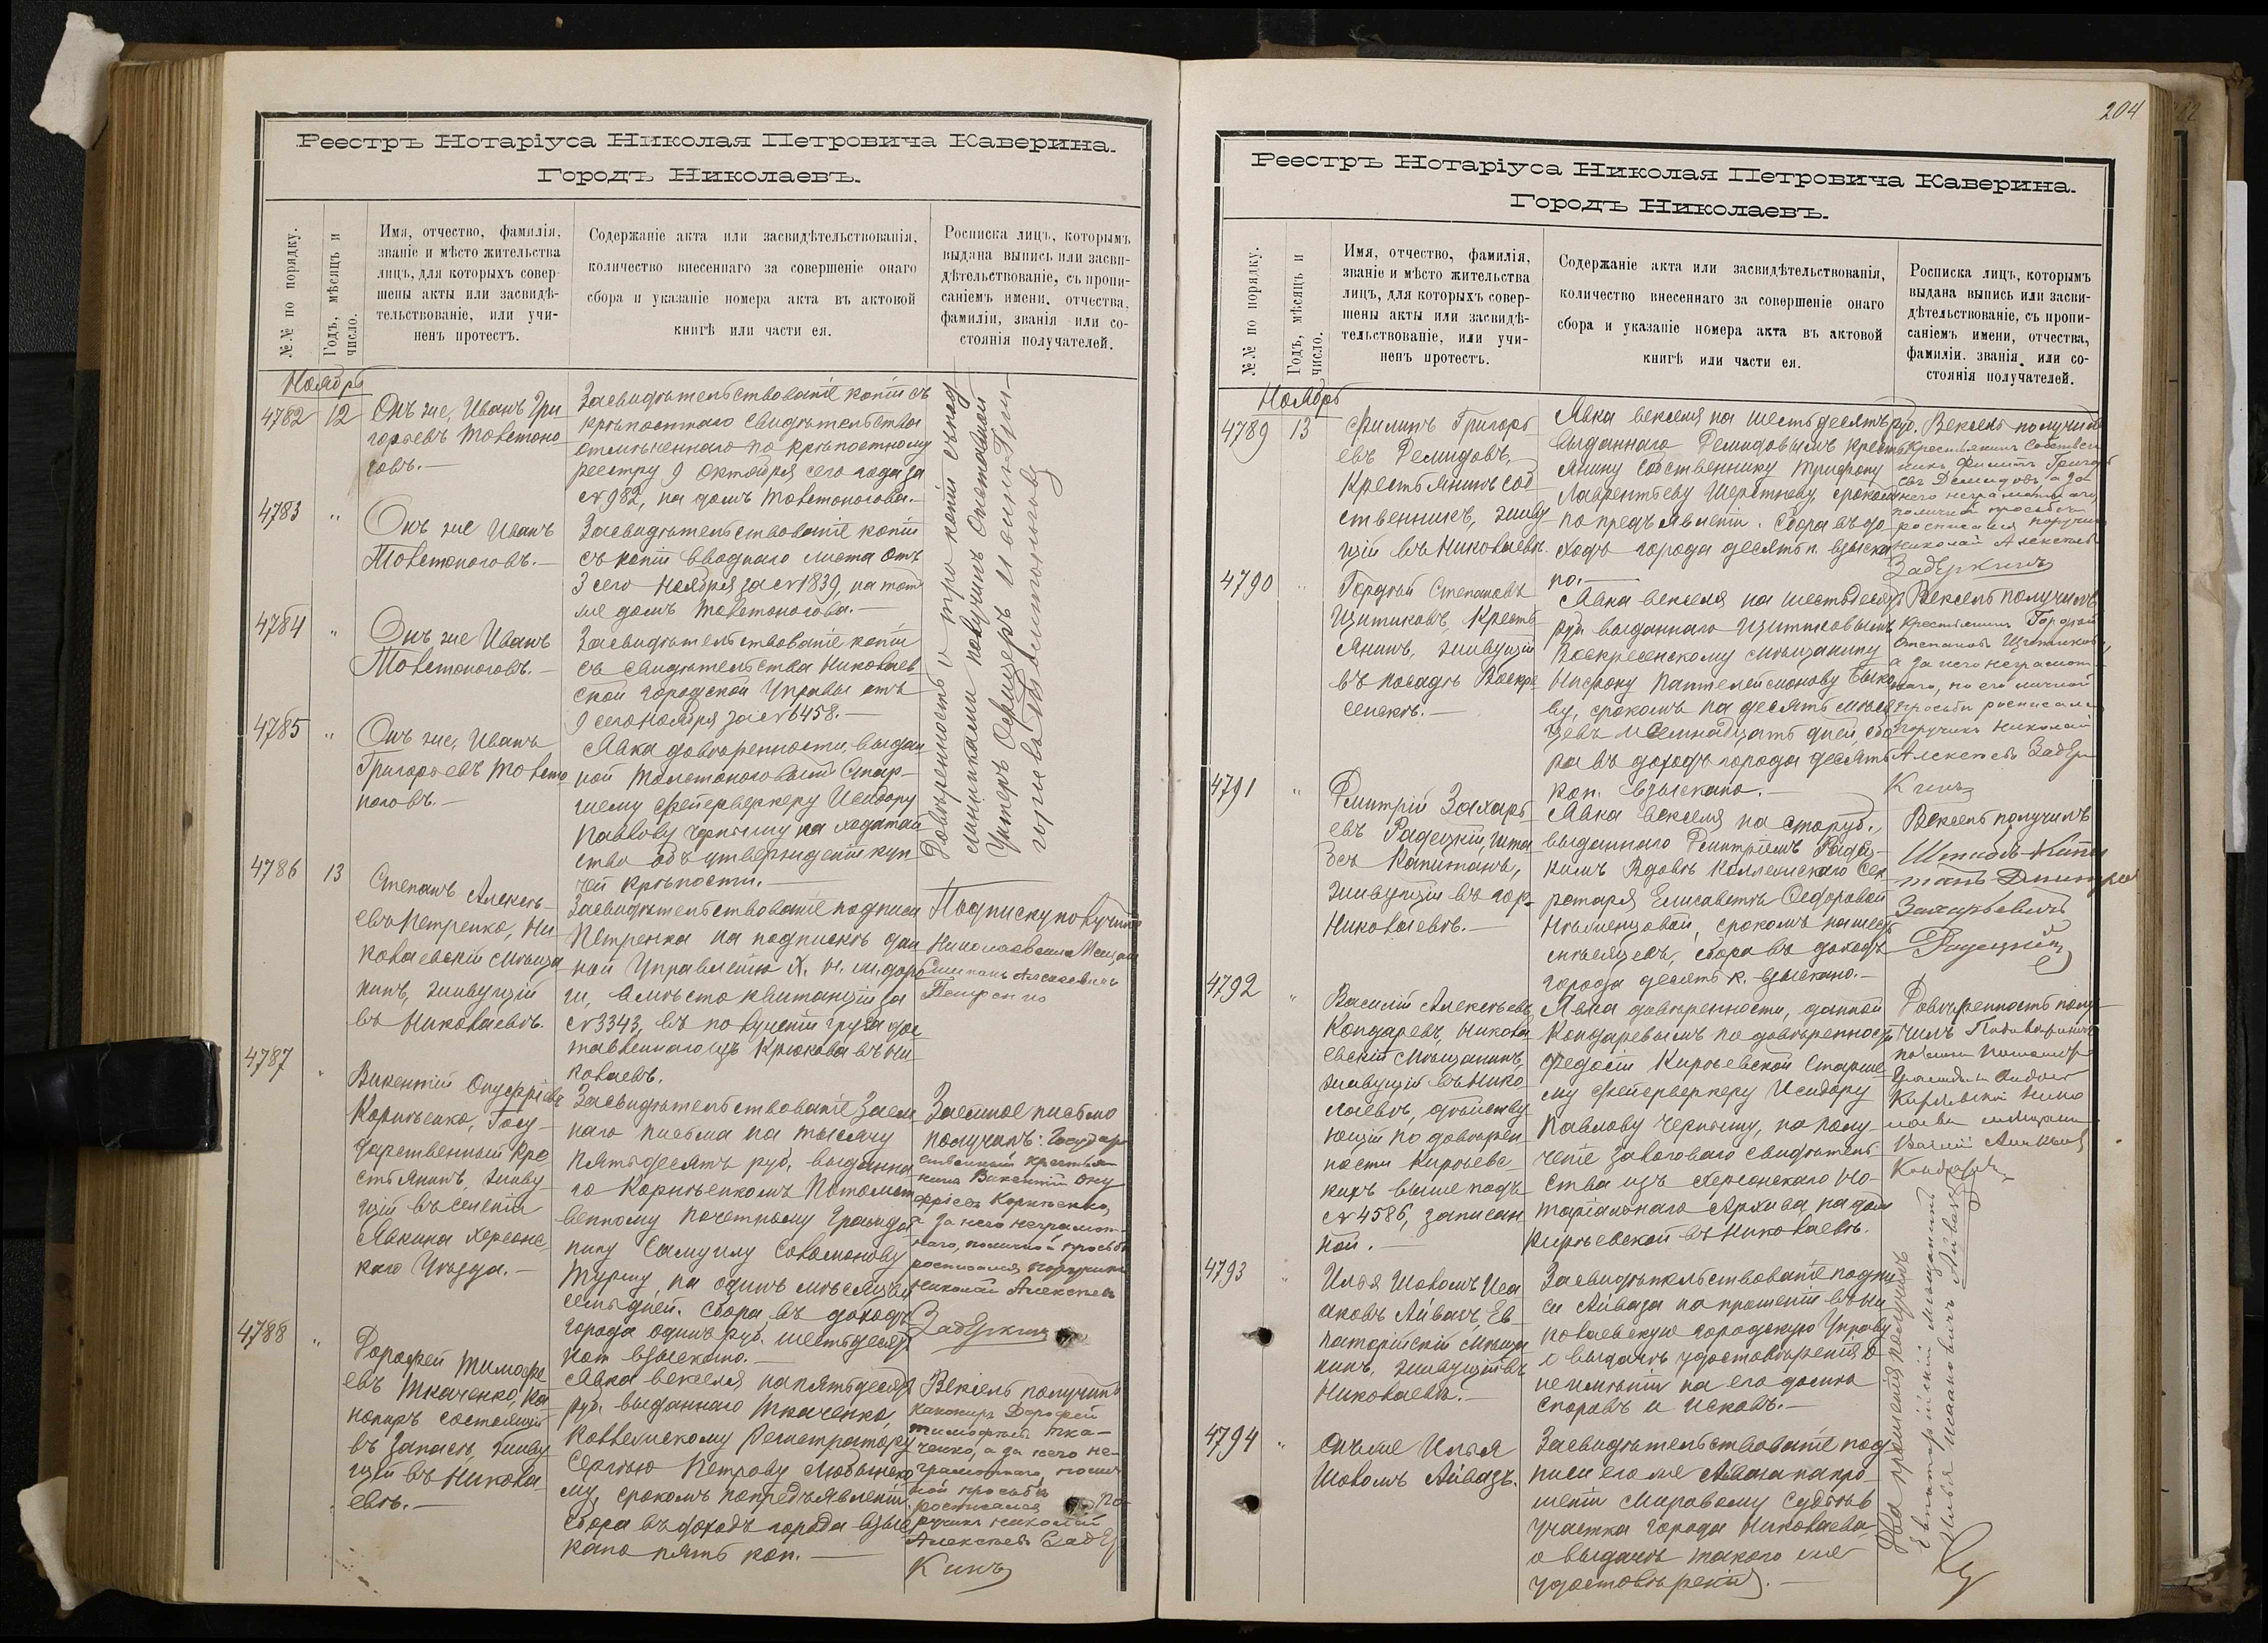 Реестръ Нотаріуса Николая Петровича Каверина.
Городъ Николаевъ.
№№ по порядку.
Годъ, мѣсяцъ и
число.
Имя, отчество, фамилія,
званіе и мѣсто жительства
лицъ, для которыхъ совер-
шены акты или засвидѣ-
тельствованіе, или учи-
ненъ протестъ.
Содержаніе акта или засвидѣтельствованія,
количество внесеннаго за совершеніе онаго
сбора и указаніе номера акта въ актовой
книгѣ или части ея.
Росписка лицъ, которымъ
выдана выпись или засви-
дѣтельствованіе, съ пропи-
саніемъ имени, отчества,
фамиліи, званія или со-
стоянія получателей.
Ноябрь
4782 12
Онъ же, Иванъ Гри
горьевъ Товстоно
говъ.—
Засвидѣтельствованіе копіи съ
крѣпостнаго свидѣтельства
отмѣченнаго по крѣпостному
реестру 9 Октября сего года за
№ 982, на домъ Товстоногова.—
4783 "
Онъ же Иванъ
Товстоноговъ.—
Засвидѣтельствованіе копіи
съ копіи вводнаго листа отъ
3 сего Ноября за № 1839, на тотъ
же домъ Товстоногова.—
4784 "
Онъ же Иванъ
Товстоноговъ.—
Засвидѣтельствованіе копіи
съ свидѣтельства Николаев
ской городской Управы отъ
9 сего Ноября за № 6458.—
4785 "
Онъ же, Иванъ
Григорьевъ Товсто
ноговъ.—
Явка довѣренности, выдан
ной Товстоноговымъ Стар-
шему фейерверкеру Исидору
Павлову Черному на ходатай
ство объ утвержденіи куп
чей крѣпости.—
Довѣренность и три копіи съ под
линниками получилъ Отставной
Унтеръ Офицеръ
4786 13
Степанъ Алексѣ-
евъ Петренко, Ни
колаевскій мѣща
нинъ, живущій
въ Николаевѣ.
Засвидѣтельствованіе подписи
Петренка на подпискѣ дан
ной Управленію Х. Н. ж. доро
ги, вмѣсто квитанціи за
№ 3343, въ полученіи груза дос
тавленнаго изъ Крюкова въ Ни
колаевъ.
Подписку получилъ
Николаевскій Мещан
Степанъ Алексеевичъ
Петренко
4787 "
Викентій Онуфріевъ
Корнѣенко, Госу-
дарственный кре
стьянинъ, живу-
щій въ селеніи
Явкина Херсонс
каго Уѣзда.—
Засвидѣтельствованіе заем
наго письма на тысячу
пятьдесятъ руб. выданна
го Корнѣенкомъ Потомст
венному почетному гражда
нину Самуилу Соломонову
на одинъ мѣсяцъ и
семь дней. Сбора въ доходъ
города одинъ руб. шестьдесятъ
коп взыскано.—
Заемное письмо
получилъ: Государ
ственный крестья
нинъ Викентій Ону
фріевъ Корнѣенко,
а за него неграмот-
наго, по личной просьбѣ
росписался поручикъ
Николай Алексѣевъ
Задеркинъ
4788 "
Дорофей Тимофе
евъ Ткаченко, ка
нониръ состоящій
въ запасѣ, живу
щій въ Никола
евѣ.—
Явка векселя на пятьдесятъ
руб. выданнаго Ткаченко,
Коллежскому Регистратору
Сергѣю Петрову
му, срокомъ по предъявленіи.
Сбора въ доходъ города взыс
кано пять коп.—
Вексель получилъ
канониръ Дорофей
Тимофеевъ Тка-
ченко, а за него не-
грамотнаго, по лич
ной просьбѣ
росписался По-
ручикъ Николай
Алексѣевъ Задер
кинъ
204
Реестръ Нотаріуса Николая Петровича Каверина.
Городъ Николаевъ.
№№ по порядку.
Годъ, мѣсяцъ и
число.
Имя, отчество, фамилія,
званіе и мѣсто жительства
лицъ, для которыхъ совер-
шены акты или засвидѣ-
тельствованіе, или учи-
ненъ протестъ.
Содержаніе акта или засвидѣтельствованія,
количество внесеннаго за совершеніе онаго
сбора и указаніе номера акта въ актовой
книгѣ или части ея.
Росписка лицъ, которымъ
выдана выпись или засви-
дѣтельствованіе, съ пропи-
саніемъ имени, отчества,
фамиліи, званія или со-
стоянія получателей.
Ноябрь
4789 13
Филипъ Григорь
евъ Демидовъ,
Крестьянинъ соб
ственникъ, живу-
щій въ Николаевѣ.
Явка векселя на шестьдесятъ руб.
выданнаго Демидовымъ Кресть
янину собственнику Трифону
Лаврентьеву Шерстневу, срокомъ
по предъявленіи. Сбора въ до
ходъ города десять к. взыска
но.—
Вексель получилъ
Крестьянинъ Собствен
никъ Филипъ Григорь
евъ Демидовъ, а за
него неграмотнаго
по личной просьбѣ
росписался поручикъ
Николай Алексѣевъ
Задеркинъ
4790 "
Гордѣй Степановъ
Щитиковъ, Кресть
янинъ, живущій
въ посадѣ Воскре
сенскѣ.—
Явка векселя на шестьдесятъ
руб. выданнаго Щитиковымъ
Воскресенскому мѣщанину
Пантелеймонову Быко
ву, срокомъ на десять мѣся
цевъ и семнадцать дней, сбо
ра въ доходъ города десять
коп. взыскано.—
Вексель получилъ
крестьянинъ Гордѣй
Степановъ Щитиковъ,
а за него неграмот
наго, по его личной
просьбѣ росписался
поручикъ Николай
Алексѣевъ Задер
кинъ
4791 "
Дмитрій Захарь
евъ Радецкій, Шта
бсъ Капитанъ,
живущій въ гор.
Николаевѣ.—
Явка векселя на сто руб.,
выданнаго Дмитріемъ Радец-
кимъ Вдовѣ Коллежскаго Сек
ретаря Елисаветѣ Ѳедоровой
срокомъ на шесть
мѣсяцевъ, сбора въ доходъ
города десять к. взыскано.—
Вексель получилъ
Штабсъ-Капи
танъ Дмитрій
Захарьевичъ
Радецкій
4792 "
Василій Алексѣевъ
Кондаревъ, Никола
евскій мѣщанинъ,
живущій въ Нико-
лаевѣ, дѣйству
ющій по довѣрен
ности Кирѣевс-
кихъ выше подъ
№ 4586, записан
ной.—
Явка довѣренности, данной
Кондаревымъ по довѣренности
Федосіи Кирѣевской Старше
му фейерверкеру Исидору
Павлову Черному, на полу
ченіе залоговаго свидѣтель
ства изъ Херсонскаго Но-
таріальнаго Архива, на домъ
Кирѣевской въ Николаевѣ.
Довѣренность полу-
чилъ
Кирѣевской Нико
лаевскій мещанинъ
Василій Алексѣевъ
Кондаревъ
4793 "
Илья Шоломъ Иса
аковъ Айвазъ, Ев
паторійскій мѣща
нинъ, живущій въ
Николаевѣ.—
Засвидѣтельствованіе подпи
си Айваза на прошеніи въ Ни
колаевскую городскую Управу
о выдачѣ удостовѣренія о
неимѣніи на его домъ
споровъ и исковъ.—
4794 "
Онъ же Илья
Шоломъ Айвазъ.
Засвидѣтельствованіе под-
писи его же Айваза на про
шеніи Мировому Судьѣ
участка города Николаева
о выдачѣ такого же
удостовѣренія.—
Два прошенія получилъ
Евпаторійскій Мѣщанинъ
Илья Исааковичъ Айвазъ